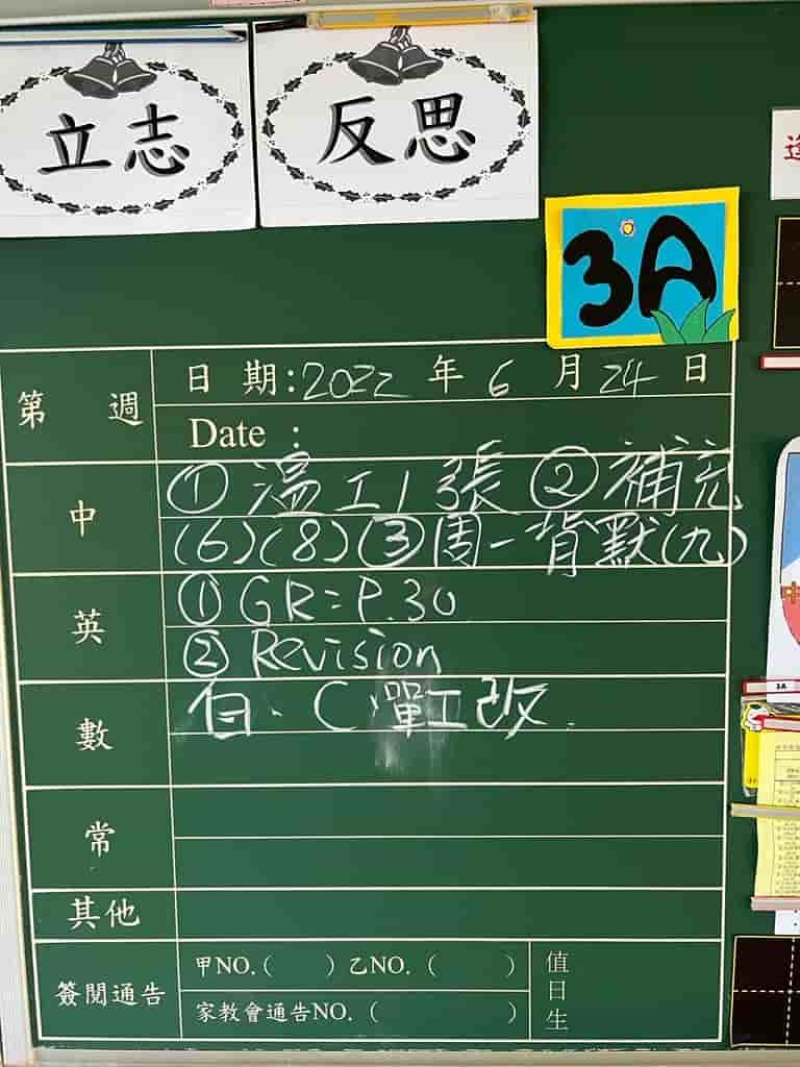 立志
反思
3A
第 週
日 期:2022 年 6 月 24 日
Date :
中
① 溫工1張 ② 補充
(6)(8)③周一背默(九)
英
① GR:P.30
② Revision
數
白、C 單工改
常
其他
簽閱通告
甲NO.( ) 乙NO. ( )
家教會通告NO. ( )
值日生